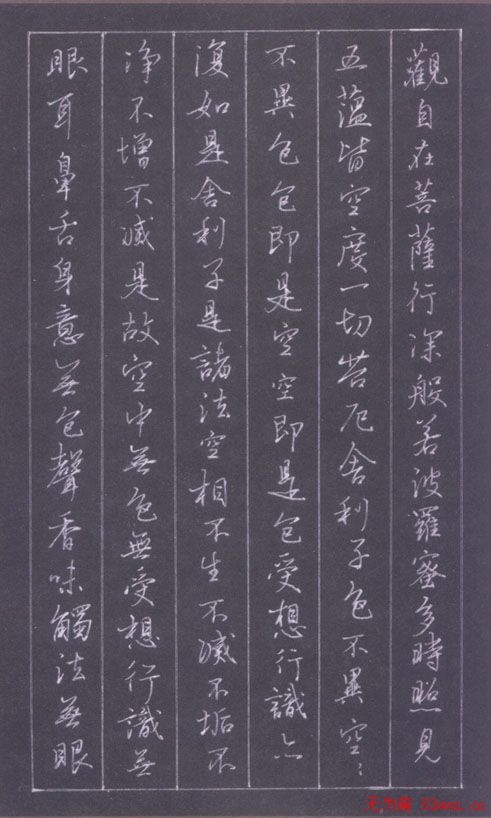 觀自在菩薩行深般若波羅蜜多時照見
五蘊皆空度一切苦厄舍利子色不異空〻
不異色色即是空空即是色受想行識亦
復如是舍利子是諸法空相不生不滅不垢不
净不增不減是故空中無色無受想行識無
眼耳鼻舌身意無色聲香味觸法無眼